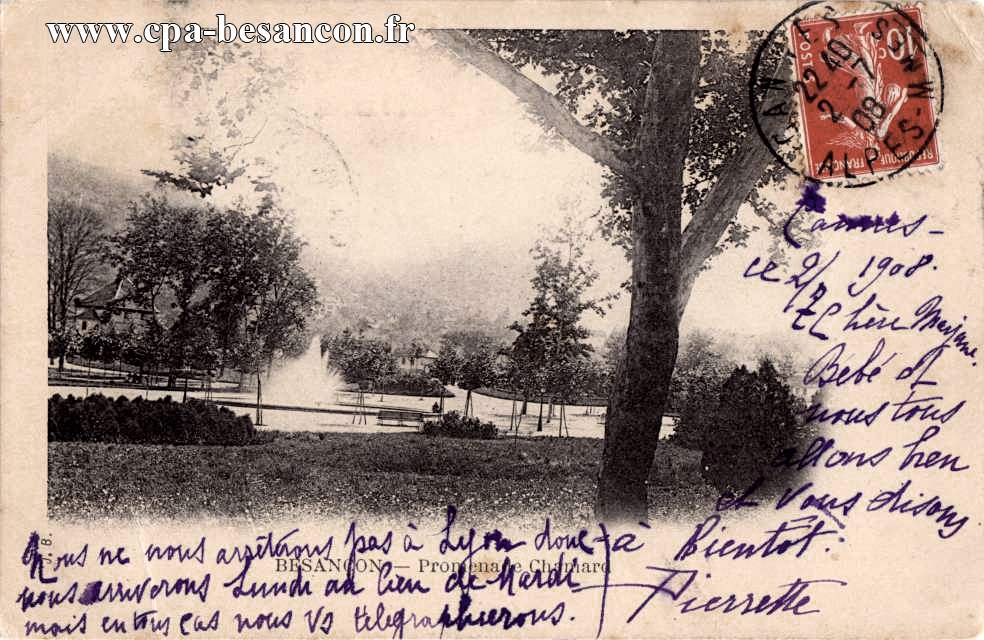 www.cpa-besancon.fr
10
POSTES
REPUBLIQUE FRANÇAISE
22 40
2 - 1
08
ALPES-
Cannes -
ce 2/1 1908.
Chère Marjane.
Bébé et
nous tous
allons bien
et vous disons
à Bientôt.
Pierrette
J. B.
BESANÇON — Promenade Chamard
Nous ne nous arrêterons pas à Lyon donc
nous arriverons Lundi au lieu de Mardi
mais en tous cas nous vs télégraphierons.